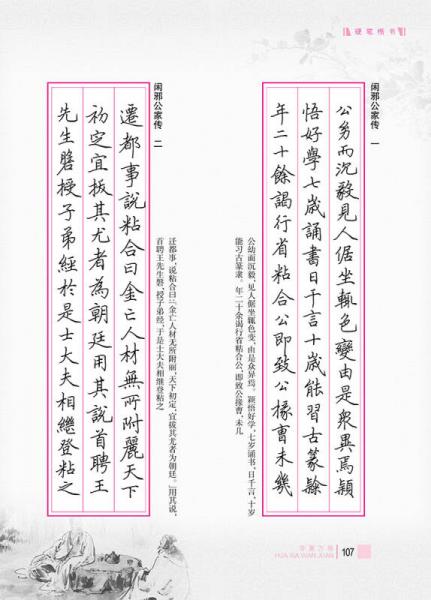 硬笔楷书
闲邪公家传 一
公㓜而沉毅見人倨坐輒色變由是衆異焉穎
悟好學七歲誦書日千言十歲能習古篆隸
年二十餘謁行省粘合公即致公掾曹未幾
公幼而沉毅,见人倨坐辄色变,由是众异焉。颖悟好学,七岁诵书,日千言,十岁
能习古篆隶。年二十余谒行省粘合公,即致公掾曹,未几
闲邪公家传 二
遷都事說粘合曰金亡人材無所附麗天下
初定宜拔其尤者為朝廷用其說首聘王
先生磐授子弟經於是士大夫相繼登粘之
迁都事,说粘合曰:“金亡人材无所附丽,天下初定,宜拔其尤者为朝廷。”用其说,
首聘王先生磐,授子弟经,于是士大夫相继登粘之
华夏万卷
HUA XIA WAN JUAN
107